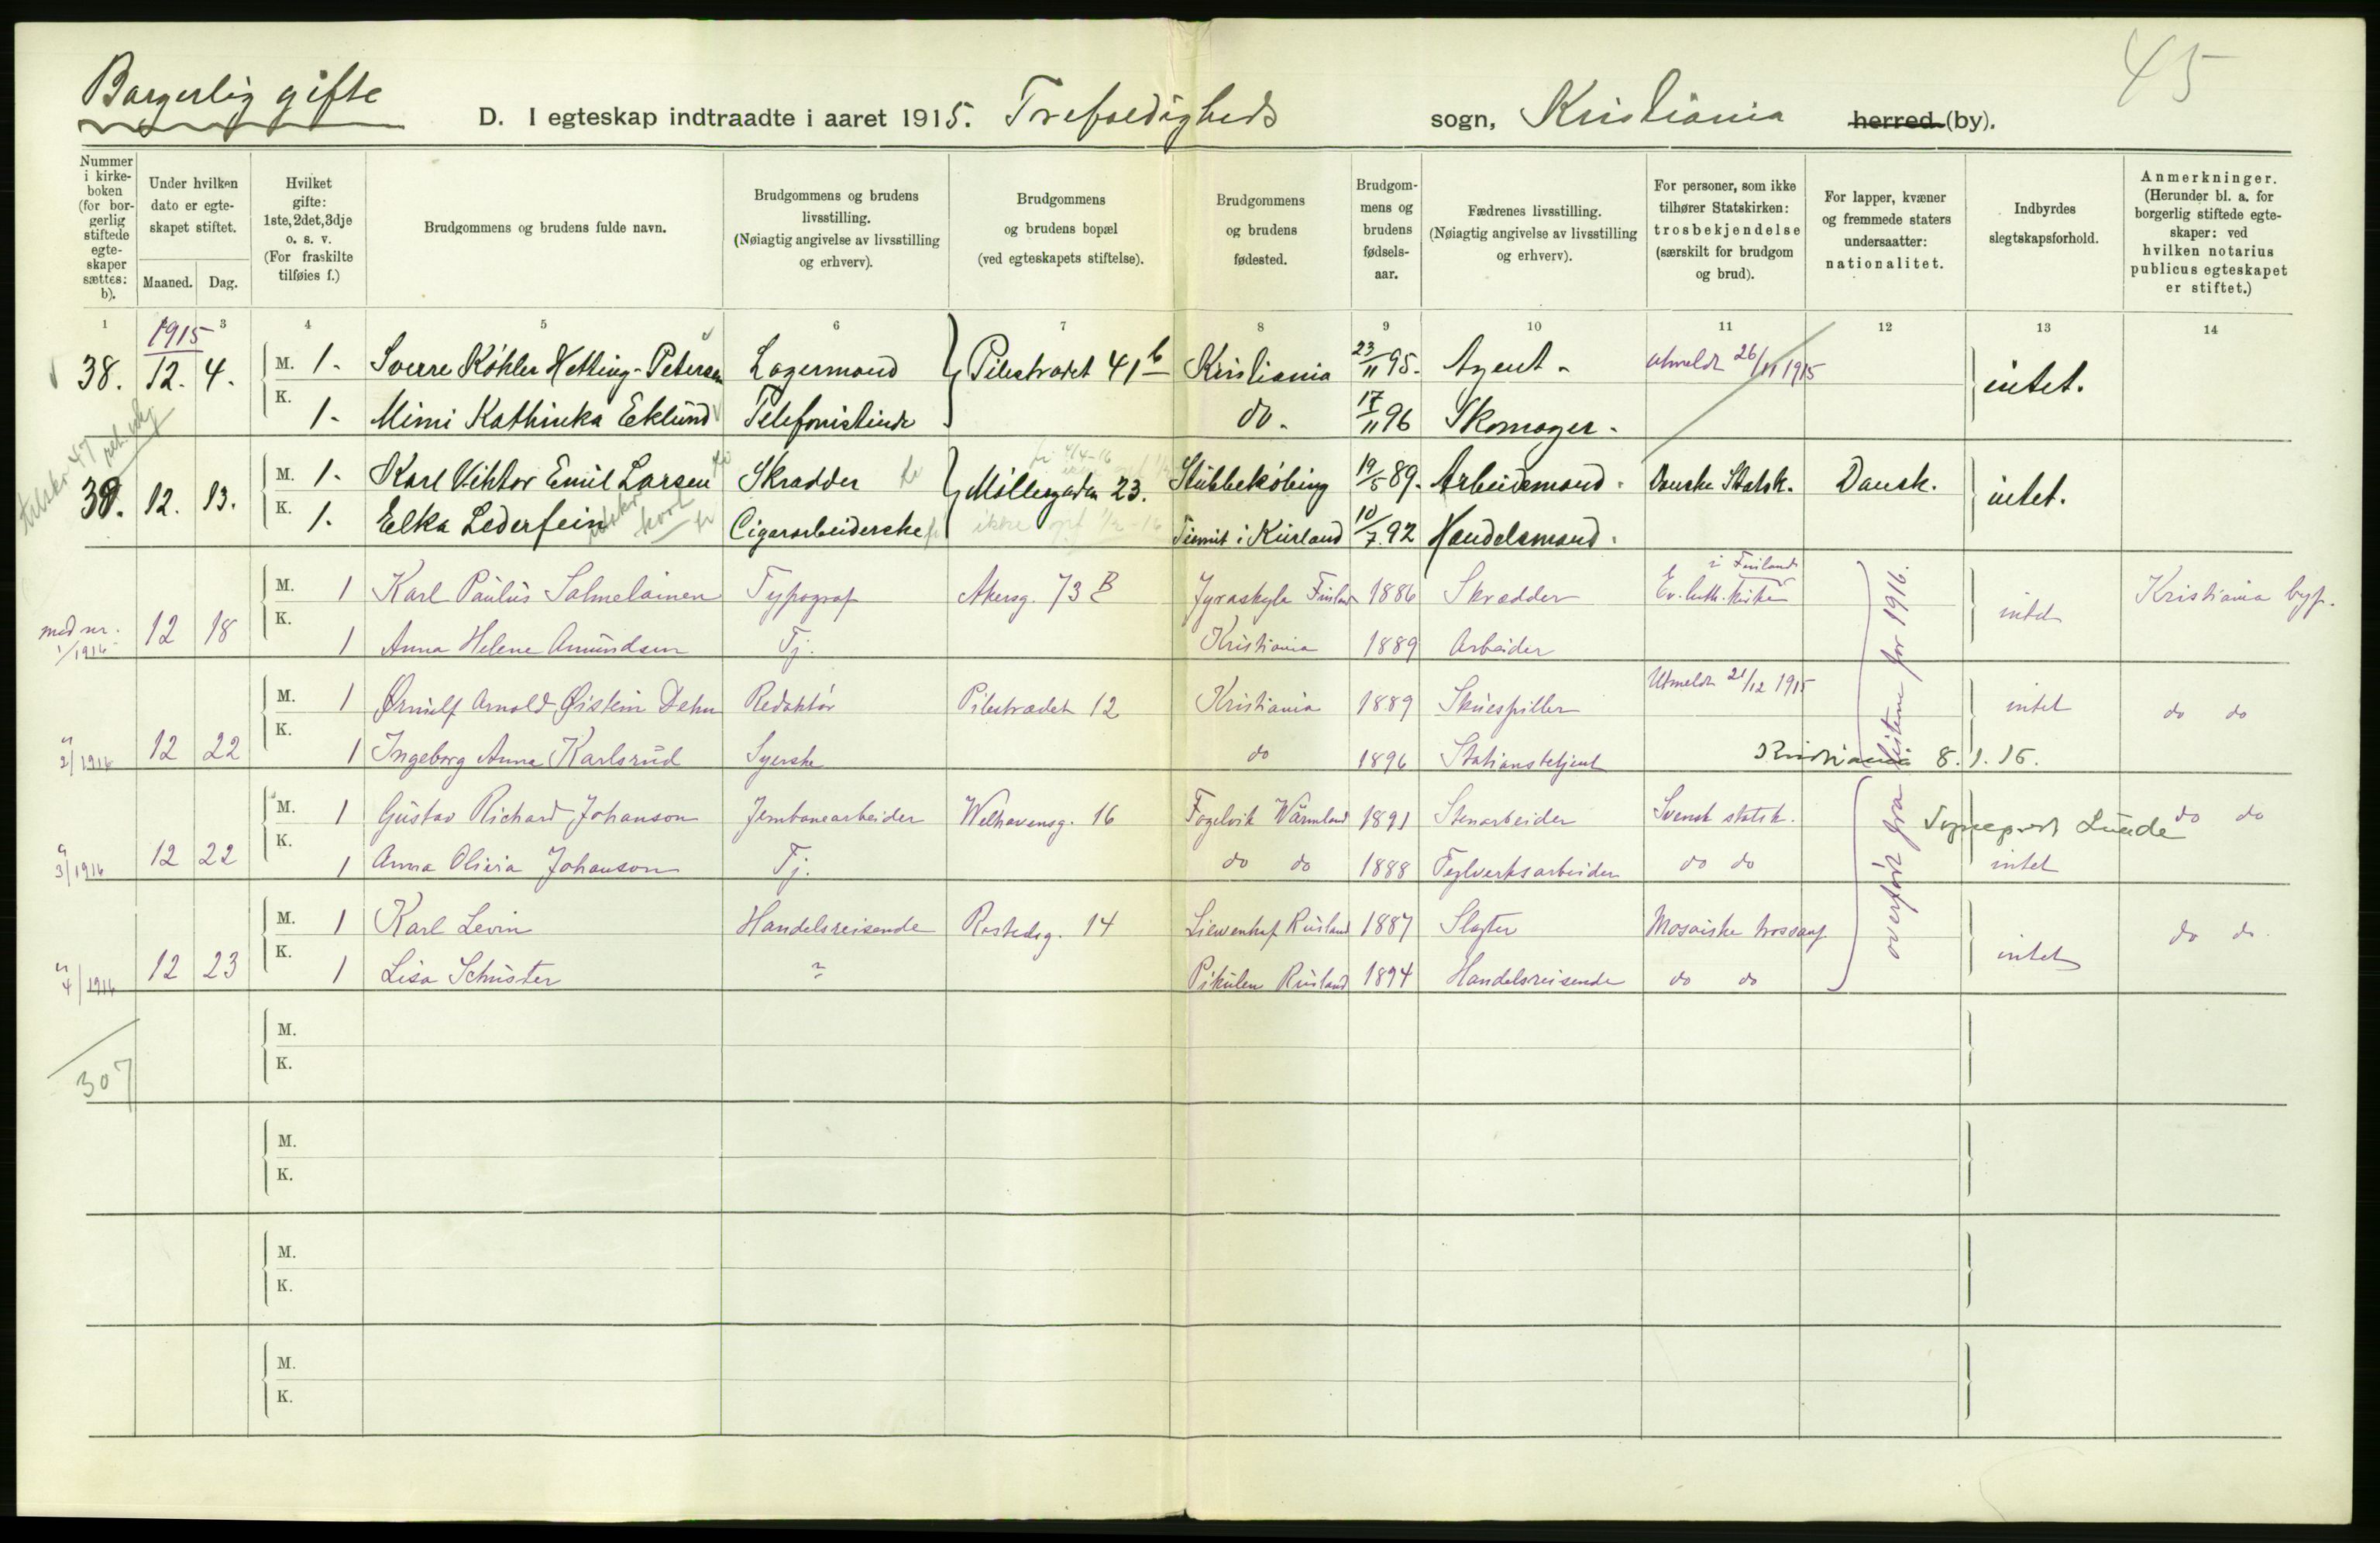 45
Borgerlig gifte
D. I egteskap indtraadte i aaret 1915. Trefoldigheds sogn, Kristiania herred (by).
Nummer i kirkeboken (for borgerlig stiftede egteskaper sættes: b).
Under hvilken dato er egteskapet stiftet.
Maaned. Dag.
Hvilket gifte: 1ste, 2det, 3dje o. s. v. (For fraskilte tilføies f.)
Brudgommens og brudens fulde navn.
Brudgommens og brudens livsstilling. (Nøiagtig angivelse av livsstilling og erhverv).
Brudgommens og brudens bopæl (ved egteskapets stiftelse).
Brudgommens og brudens fødested.
Brudgommens og brudens fødselsaar.
Fædrenes livsstilling. (Nøiagtig angivelse av livsstilling og erhverv).
For personer, som ikke tilhører Statskirken: trosbekjendelse (særskilt for brudgom og brud).
For lapper, kvæner og fremmede staters undersaatter: nationalitet.
Indbyrdes slegtskapsforhold.
Anmerkninger. (Herunder bl. a. for borgerlig stiftede egteskaper: ved hvilken notarius publicus egteskapet er stiftet.)
1 3 4 5 6 7 8 9 10 11 12 13 14
1915
38. 12. 4. M. 1. Sverre Köhler Hetting-Petersen Lagermand Pilestrædet 41 b Kristiania 23/11 95. Agent. Utmeldt 26/11 1915 intet.
K. 1. Mimi Kathinka Eklund Telefonistinde do. 17/11 96 Skomager.
39. 12. 13. M. 1. Karl Viktor Emil Larsen Skrædder Møllergaden 23. Stubbekøbing 19/5 89. Arbeidsmand. Danske Statsk. Dansk. intet.
K. 1. Elka Lederfein Cigararbeiderske i Kurland 10/7 92 Handelsmand.
med nr. 1/1916 12 18 M. 1 Karl Paulus Salmelainen Typograf Akersg. 73 B Jyraskyla Finland 1886 Skrædder Ev. luth. kirke i Finland intet Kristiania byf.
K. 1 Anna Helene Amundsen Tj. Kristiania 1889 Arbeider
" 2/1916 12 22 M. 1 Ørnulf Arnold Øistein Dehn Redaktør Pilestrædet 12 Kristiania 1889 Skuespiller Utmeldt 21/12 1915 intet do do
K. 1 Ingeborg Anna Karlsrud Syerske do 1896 Stationsbetjent
Kristiania 8. 1. 16.
" 3/1916 12 22 M. 1 Gustav Richard Johanson Jernbanearbeider Welhavensg. 16 Fogelvik Wärmland 1891 Stenarbeider Svensk statsk. do do
Sogneprest Lunde
K. 1 Anna Olivia Johanson Tj. do do 1888 Teglverksarbeider do do intet
" 4/1916 12 23 M. 1 Karl Levin Handelsreisende Rostedsg. 14 Liewenhof Rusland 1887 Slagter Mosaiske trossamf. intet do do
K. 1 Lisa Schuster Pikulen Rusland 1894 Handelsreisende do do
overført fra listene for 1916.
307
M.
K.
M.
K.
M.
K.
M.
K.